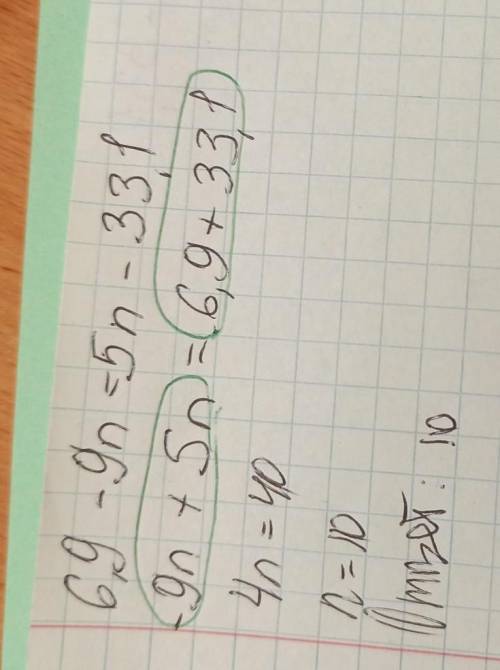 6,9 - 9n = 5n - 33,1
-9n + 5n = 6,9 + 33,1
4n = 40
n = 10
: 10